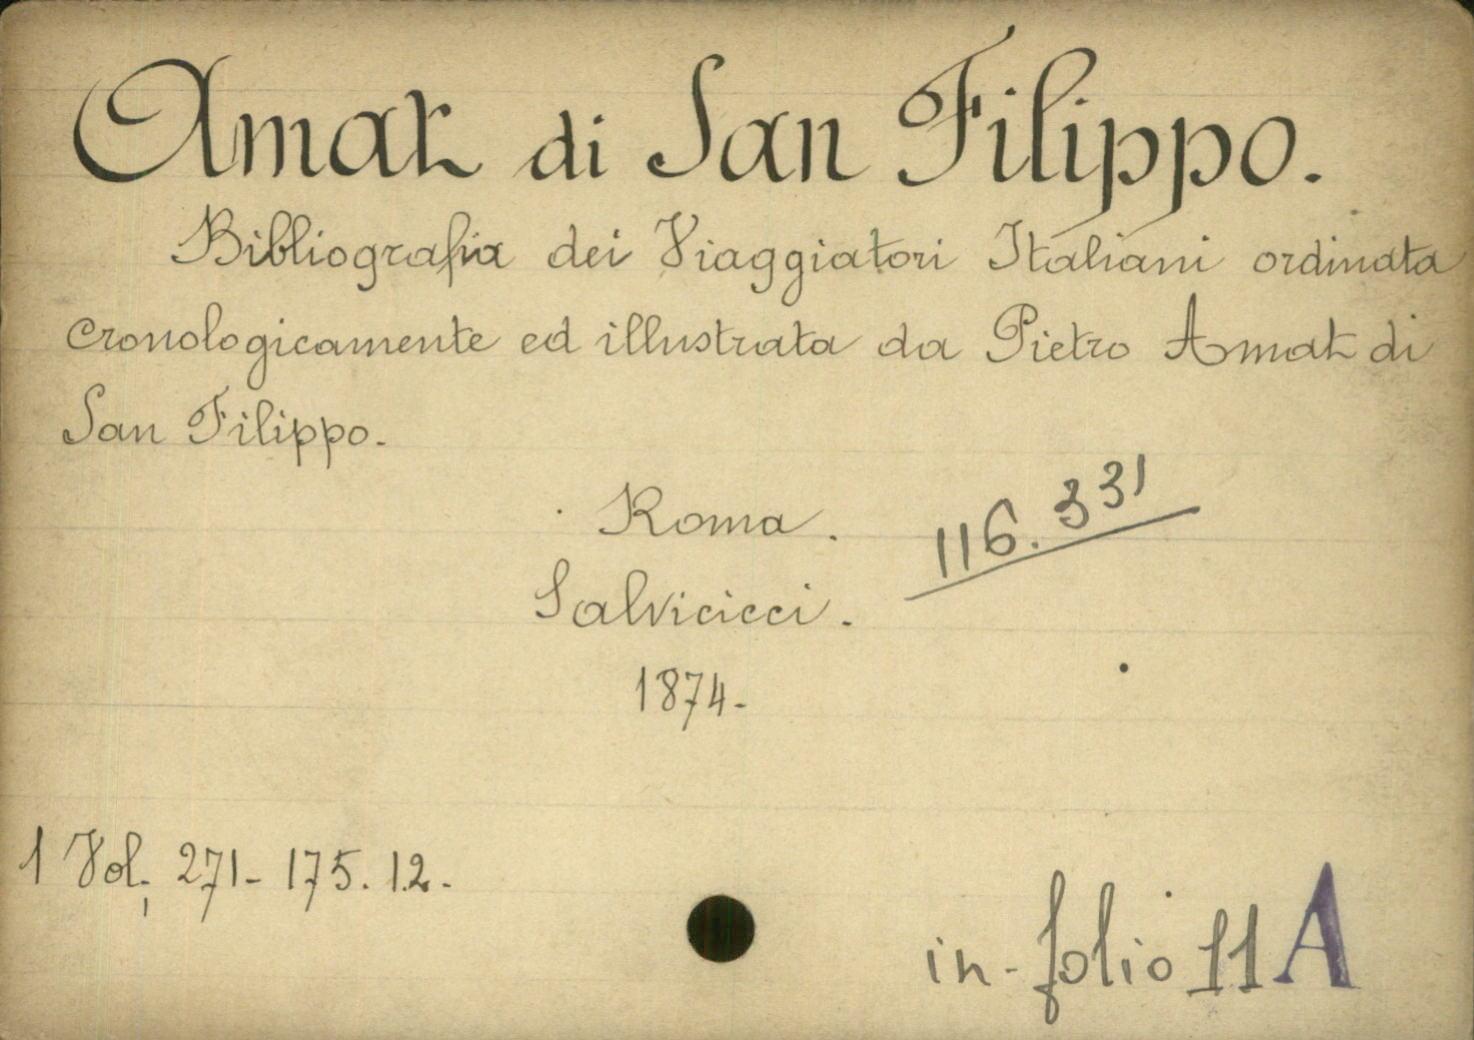 Amat di San Filippo.
Bibliografia dei Viaggiatori Italiani ordinata
cronologicamente ed illustrata da Pietro Amat di
San Filippo.
Roma.
116.331
Salvicicci.
1874.
1 Vol; 271-175.12.
in-folio 11 A